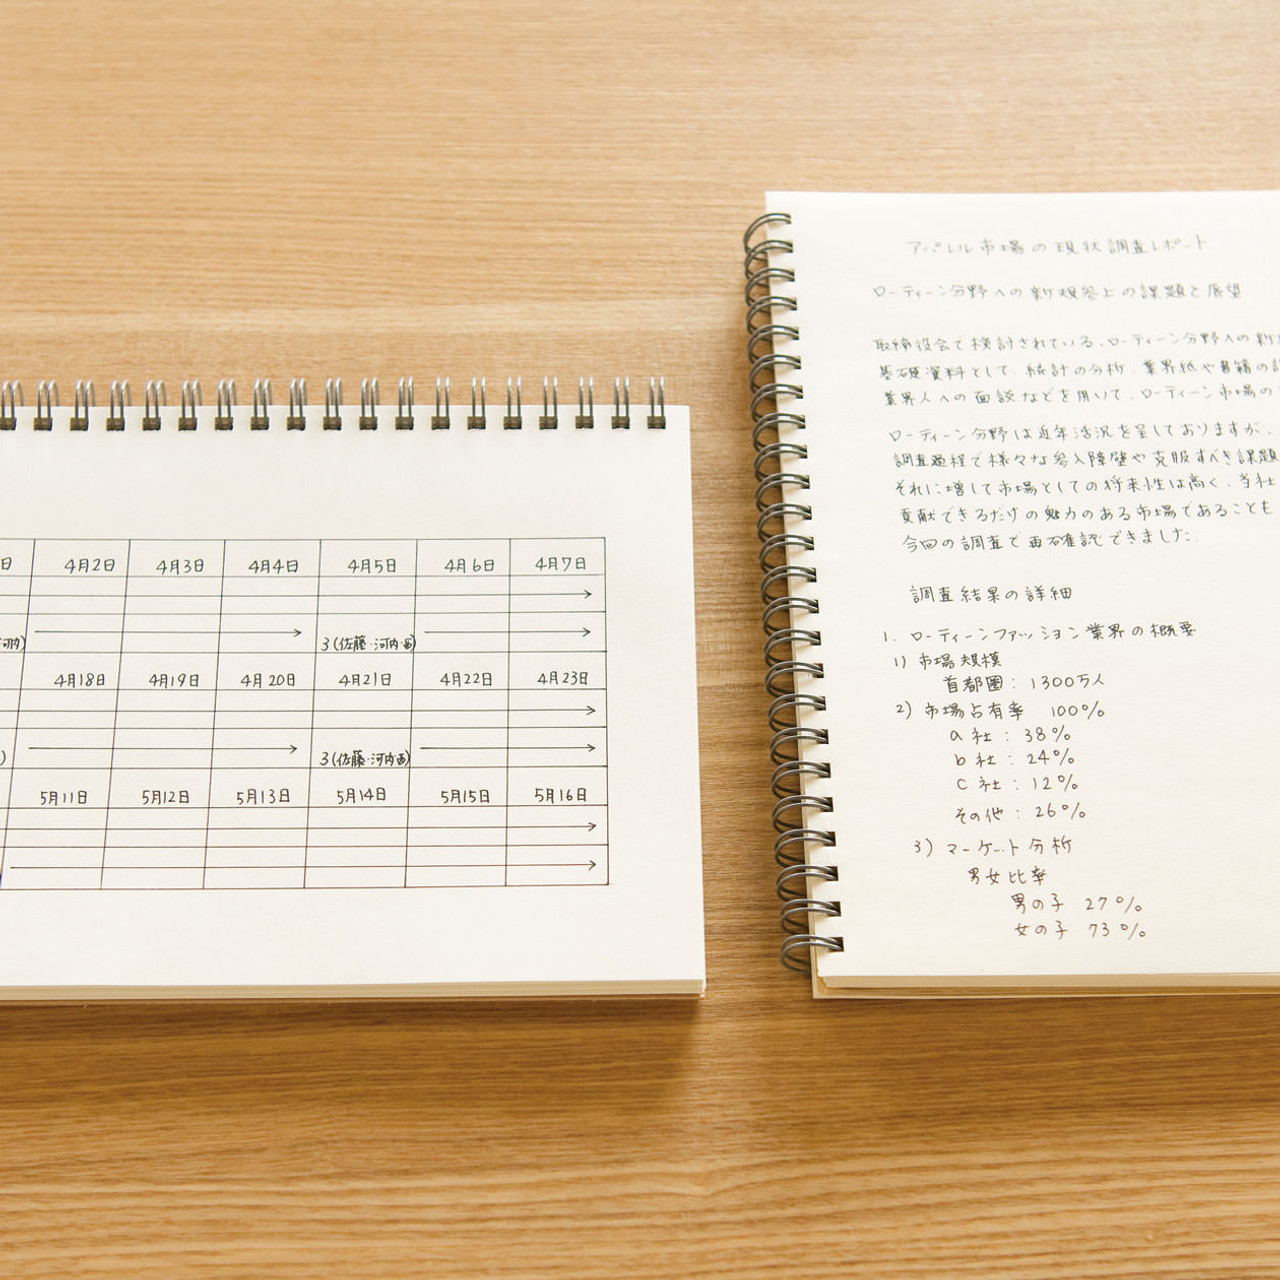 日 4月2日 4月3日 4月4日 4月5日 4月6日 4月7日
河内) 3(佐藤・河内・西)
4月18日 4月19日 4月20日 4月21日 4月22日 4月23日
) 3(佐藤・河内・西)
5月11日 5月12日 5月13日 5月14日 5月15日 5月16日
アパレル市場の現状調査レポート
ローティーン分野への新規参上の課題と展望
取締役会で検討されている、ローティーン分野への新
基礎資料として、統計の分析、業界紙や書籍の
業界人への面談などを用いて、ローティーン市場の
ローティーン分野は近年活況を呈しておりますが、
調査過程で様々な参入障壁や克服すべき課題
それに増して市場としての将来性は高く、当社
貢献できるだけの魅力のある市場であることも
今回の調査で再確認できました。
調査結果の詳細
1. ローティーンファッション業界の概要
1) 市場規模
首都圏：1300万人
2) 市場占有率 100%
a社：38%
b社：24%
c社：12%
その他：26%
3) マーケット分析
男女比率
男の子 27%
女の子 73%